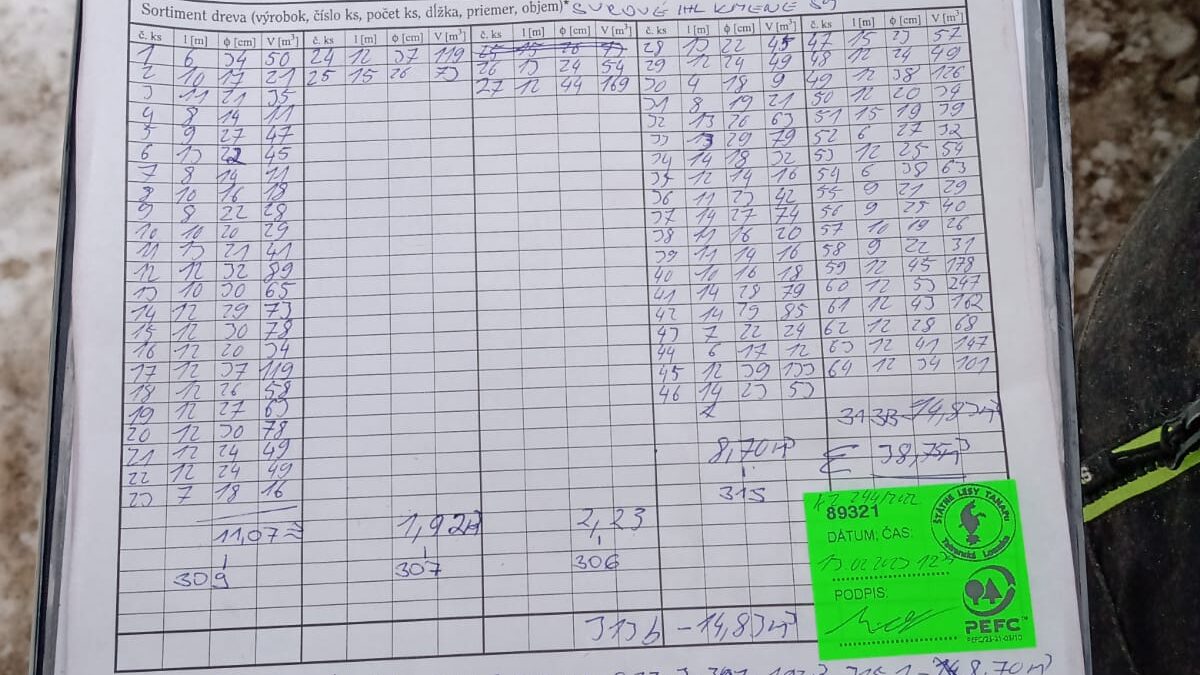 Sortiment dreva (výrobok, číslo ks, počet ks, dĺžka, priemer, objem)* SUROVÉ IHL KMENE
č. ks l [m] ϕ [cm] V [m³] č. ks l [m] ϕ [cm] V [m³] č. ks l [m] ϕ [cm] V [m³] č. ks l [m] ϕ [cm] V [m³] č. ks l [m] ϕ [cm] V [m³]
1 6 34 50 24 12 37 119 28 13 22 45 47 15 23 57
2 10 17 21 25 15 26 73 26 13 24 54 29 12 24 49 48 12 24 49
3 11 21 35 27 12 44 169 30 4 18 9 49 12 38 126
4 8 14 11 31 8 19 21 50 12 20 34
5 9 27 47 32 13 26 63 51 15 19 39
6 13 22 45 33 13 29 79 52 6 27 32
7 8 14 11 34 14 18 32 53 12 25 54
8 10 16 18 35 12 14 16 54 6 38 63
9 8 22 28 36 11 23 42 55 9 21 29
10 10 20 29 37 14 27 74 56 9 25 40
11 13 21 41 38 11 16 20 57 10 19 26
12 12 32 89 39 11 14 16 58 9 22 31
13 10 30 65 40 10 16 18 59 12 45 178
14 12 29 73 41 14 28 79 60 12 53 247
15 12 30 78 42 14 29 85 61 12 43 162
16 12 20 34 43 7 22 24 62 12 28 68
17 12 37 119 44 6 17 12 63 12 41 147
18 12 26 58 45 12 39 133 64 12 34 101
19 12 27 63 46 14 23 53
20 12 30 78 313B-14,83m³
21 12 24 49 8,70m³ Σ 38,75m³
22 12 24 49
23 7 18 16 315
11,07 1,92 2,23
309 307 306
313b -14,83m³
89321
DÁTUM, ČAS:
13.02.2023
PODPIS:
ŠTÁTNE LESY TANAPU
Tatranská Lomnica
PEFC™
PEFC/23-21-03/10
8,70m³